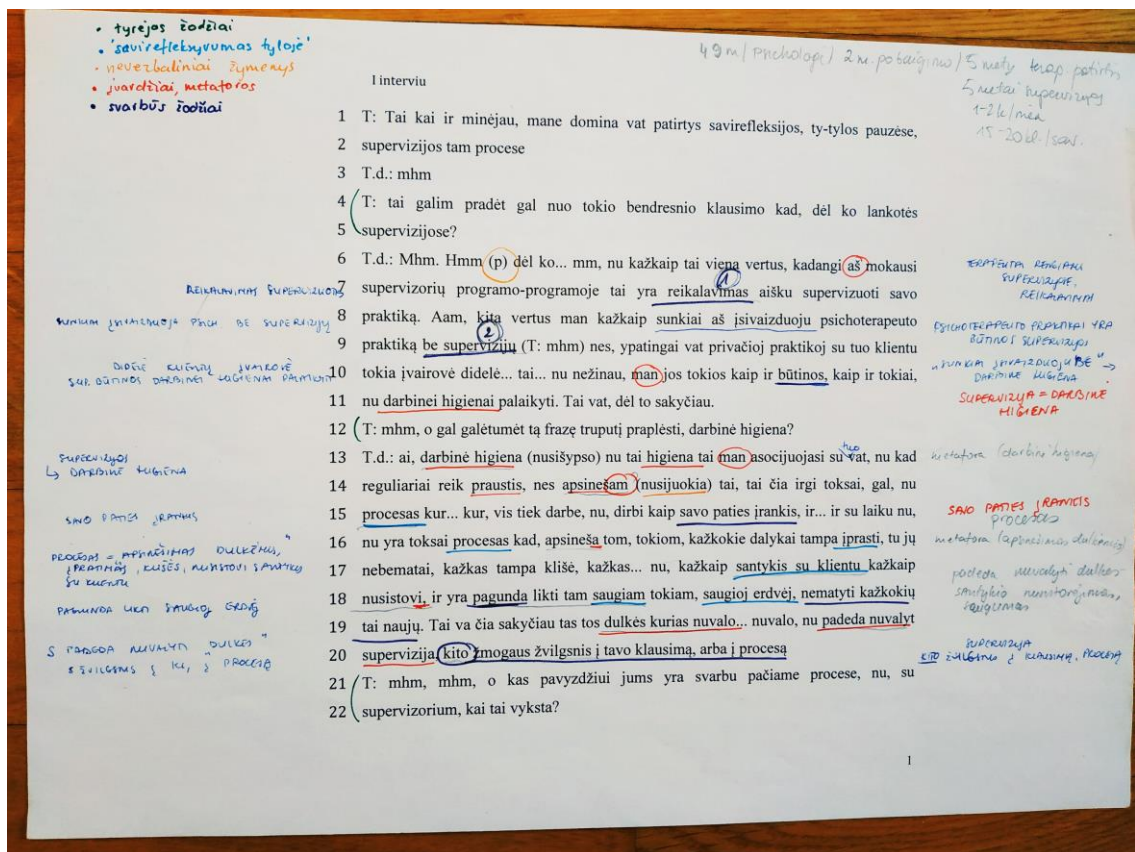 • tyrėjos žodžiai
• 'savirefleksyvumas tyloje'
• neverbaliniai žymenys
• įvardžiai, metaforos
• svarbūs žodžiai
49 m / Psichologė / 2 m. po baigimo / 5 metų terap. patirtis
5 metai supervizijos
1-2 k/mėn
15-20 kl./sav.
I interviu
1 T: Tai kai ir minėjau, mane domina vat patirtys savirefleksijos, ty-tylos pauzėse,
2 supervizijos tam procese
3 T.d.: mhm
4 T: tai galim pradėt gal nuo tokio bendresnio klausimo kad, dėl ko lankotės
5 supervizijose?
6 T.d.: Mhm. Hmm (p) dėl ko... mm, nu kažkaip tai viena vertus, kadangi aš mokausi
1
7 supervizorių programo-programoje tai yra reikalavimas aišku supervizuoti savo
8 praktiką. Aam, kita vertus man kažkaip sunkiai aš įsivaizduoju psichoterapeuto
2
9 praktiką be supervizijų (T: mhm) nes, ypatingai vat privačioj praktikoj su tuo klientu
10 tokia įvairovė didelė... tai... nu nežinau, man jos tokios kaip ir būtinos, kaip ir tokiai,
11 nu darbinei higienai palaikyti. Tai vat, dėl to sakyčiau.
12 T: mhm, o gal galėtumėt tą frazę truputį praplėsti, darbinė higiena?
13 T.d.: ai, darbinė higiena (nusišypso) nu tai higiena tai man asocijuojasi su vat, nu kad
14 reguliariai reik praustis, nes apsinešam (nusijuokia) tai, tai čia irgi toksai, gal, nu
15 procesas kur... kur, vis tiek darbe, nu, dirbi kaip savo paties įrankis, ir... ir su laiku nu,
16 nu yra toksai procesas kad, apsineša tom, tokiom, kažkokie dalykai tampa įprasti, tu jų
17 nebematai, kažkas tampa klišė, kažkas... nu, kažkaip santykis su klientu kažkaip
18 nusistovi, ir yra pagunda likti tam saugiam tokiam, saugioj erdvėj, nematyti kažkokių
19 tai naujų. Tai va čia sakyčiau tas tos dulkės kurias nuvalo... nuvalo, nu padeda nuvalyt
20 supervizija, kito žmogaus žvilgsnis į tavo klausimą, arba į procesą
21 T: mhm, mhm, o kas pavyzdžiui jums yra svarbu pačiame procese, nu, su
22 supervizorium, kai tai vyksta?
REIKALAVIMAS SUPERVIZUOTIS
SUNKIAI ĮSIVAIZDUOJA PSICH BE SUPERVIZIJŲ
DIDELĖ KLIENTŲ ĮVAIROVĖ
SUP. BŪTINOS DARBINEI HIGIENAI PALAIKYTI
SUPERVIZIJOS
↳ DARBINĖ HIGIENA
SAVO PATIES ĮRANKIS
PROCESAS = APSINEŠIMAS DULKĖMIS,
SU KLIENTU
PAGUNDA LIKTI SAUGIOJ ERDVĖJ
S PADEDA NUVALYTI "DULKES"
REIKALAVIMAS
PSICHOTERAPEUTO PRAKTIKAI YRA
BŪTINOS SUPERVIZIJOS
"SUNKIAI ĮSIVAIZDUOJU BE" →
DARBINĖ HIGIENA
SUPERVIZIJA = DARBINĖ
HIGIENA
metafora (darbinė higiena)
SAVO PATIES ĮRANKIS
procesas
metafora (apsinešimas dulkėmis)
padeda nuvalyti dulkes
santykio nusistovėjimas,
saugumas
SUPERVIZIJA
KITO ŽVILGSNIS Į KLAUSIMĄ, PROCESĄ
1